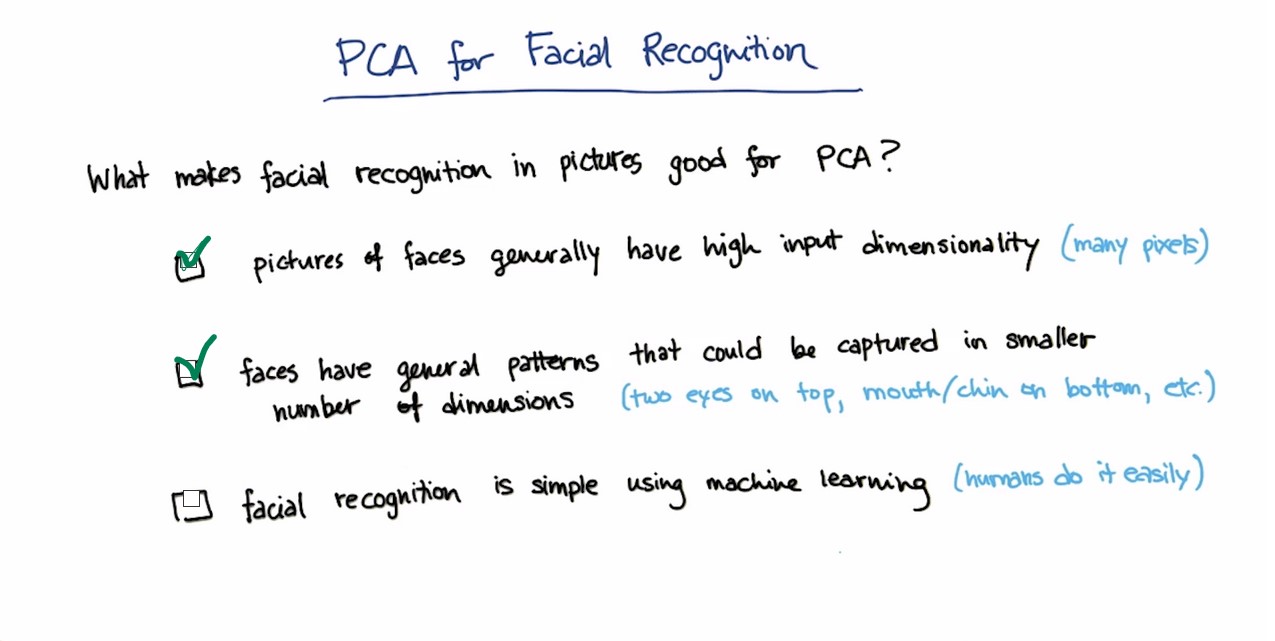 PCA for Facial Recognition
What makes facial recognition in pictures good for PCA?
pictures of faces generally have high input dimensionality (many pixels)
faces have general patterns that could be captured in smaller
number of dimensions (two eyes on top, mouth/chin on bottom, etc.)
facial recognition is simple using machine learning (humans do it easily)